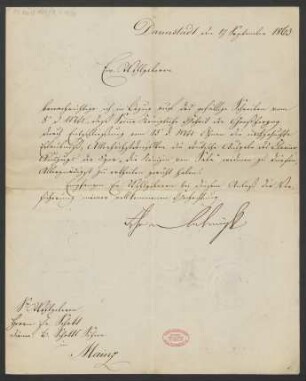 Darmstadt den 17 September 1863
Ew. Wohlgeboren
benachrichtige ich in Bezug auf das gefällige Schreiben vom
daß Seine Königliche Hoheit der Großherzog
durch Entschließung vom 15 d. Mts. Ihnen die
die deutsche Ausgabe des
der Oper, die Königin von Saba
Allergnädigst zu ertheilen geruht haben.
Empfangen Ew. Wohlgeboren bei diesem Anlaß die Ver-
sicherung meiner vollkommenen Hochachtung
Sr. Wohlgeboren
Herrn Fr. Schott
Firma B. Schott's Söhne
Mainz